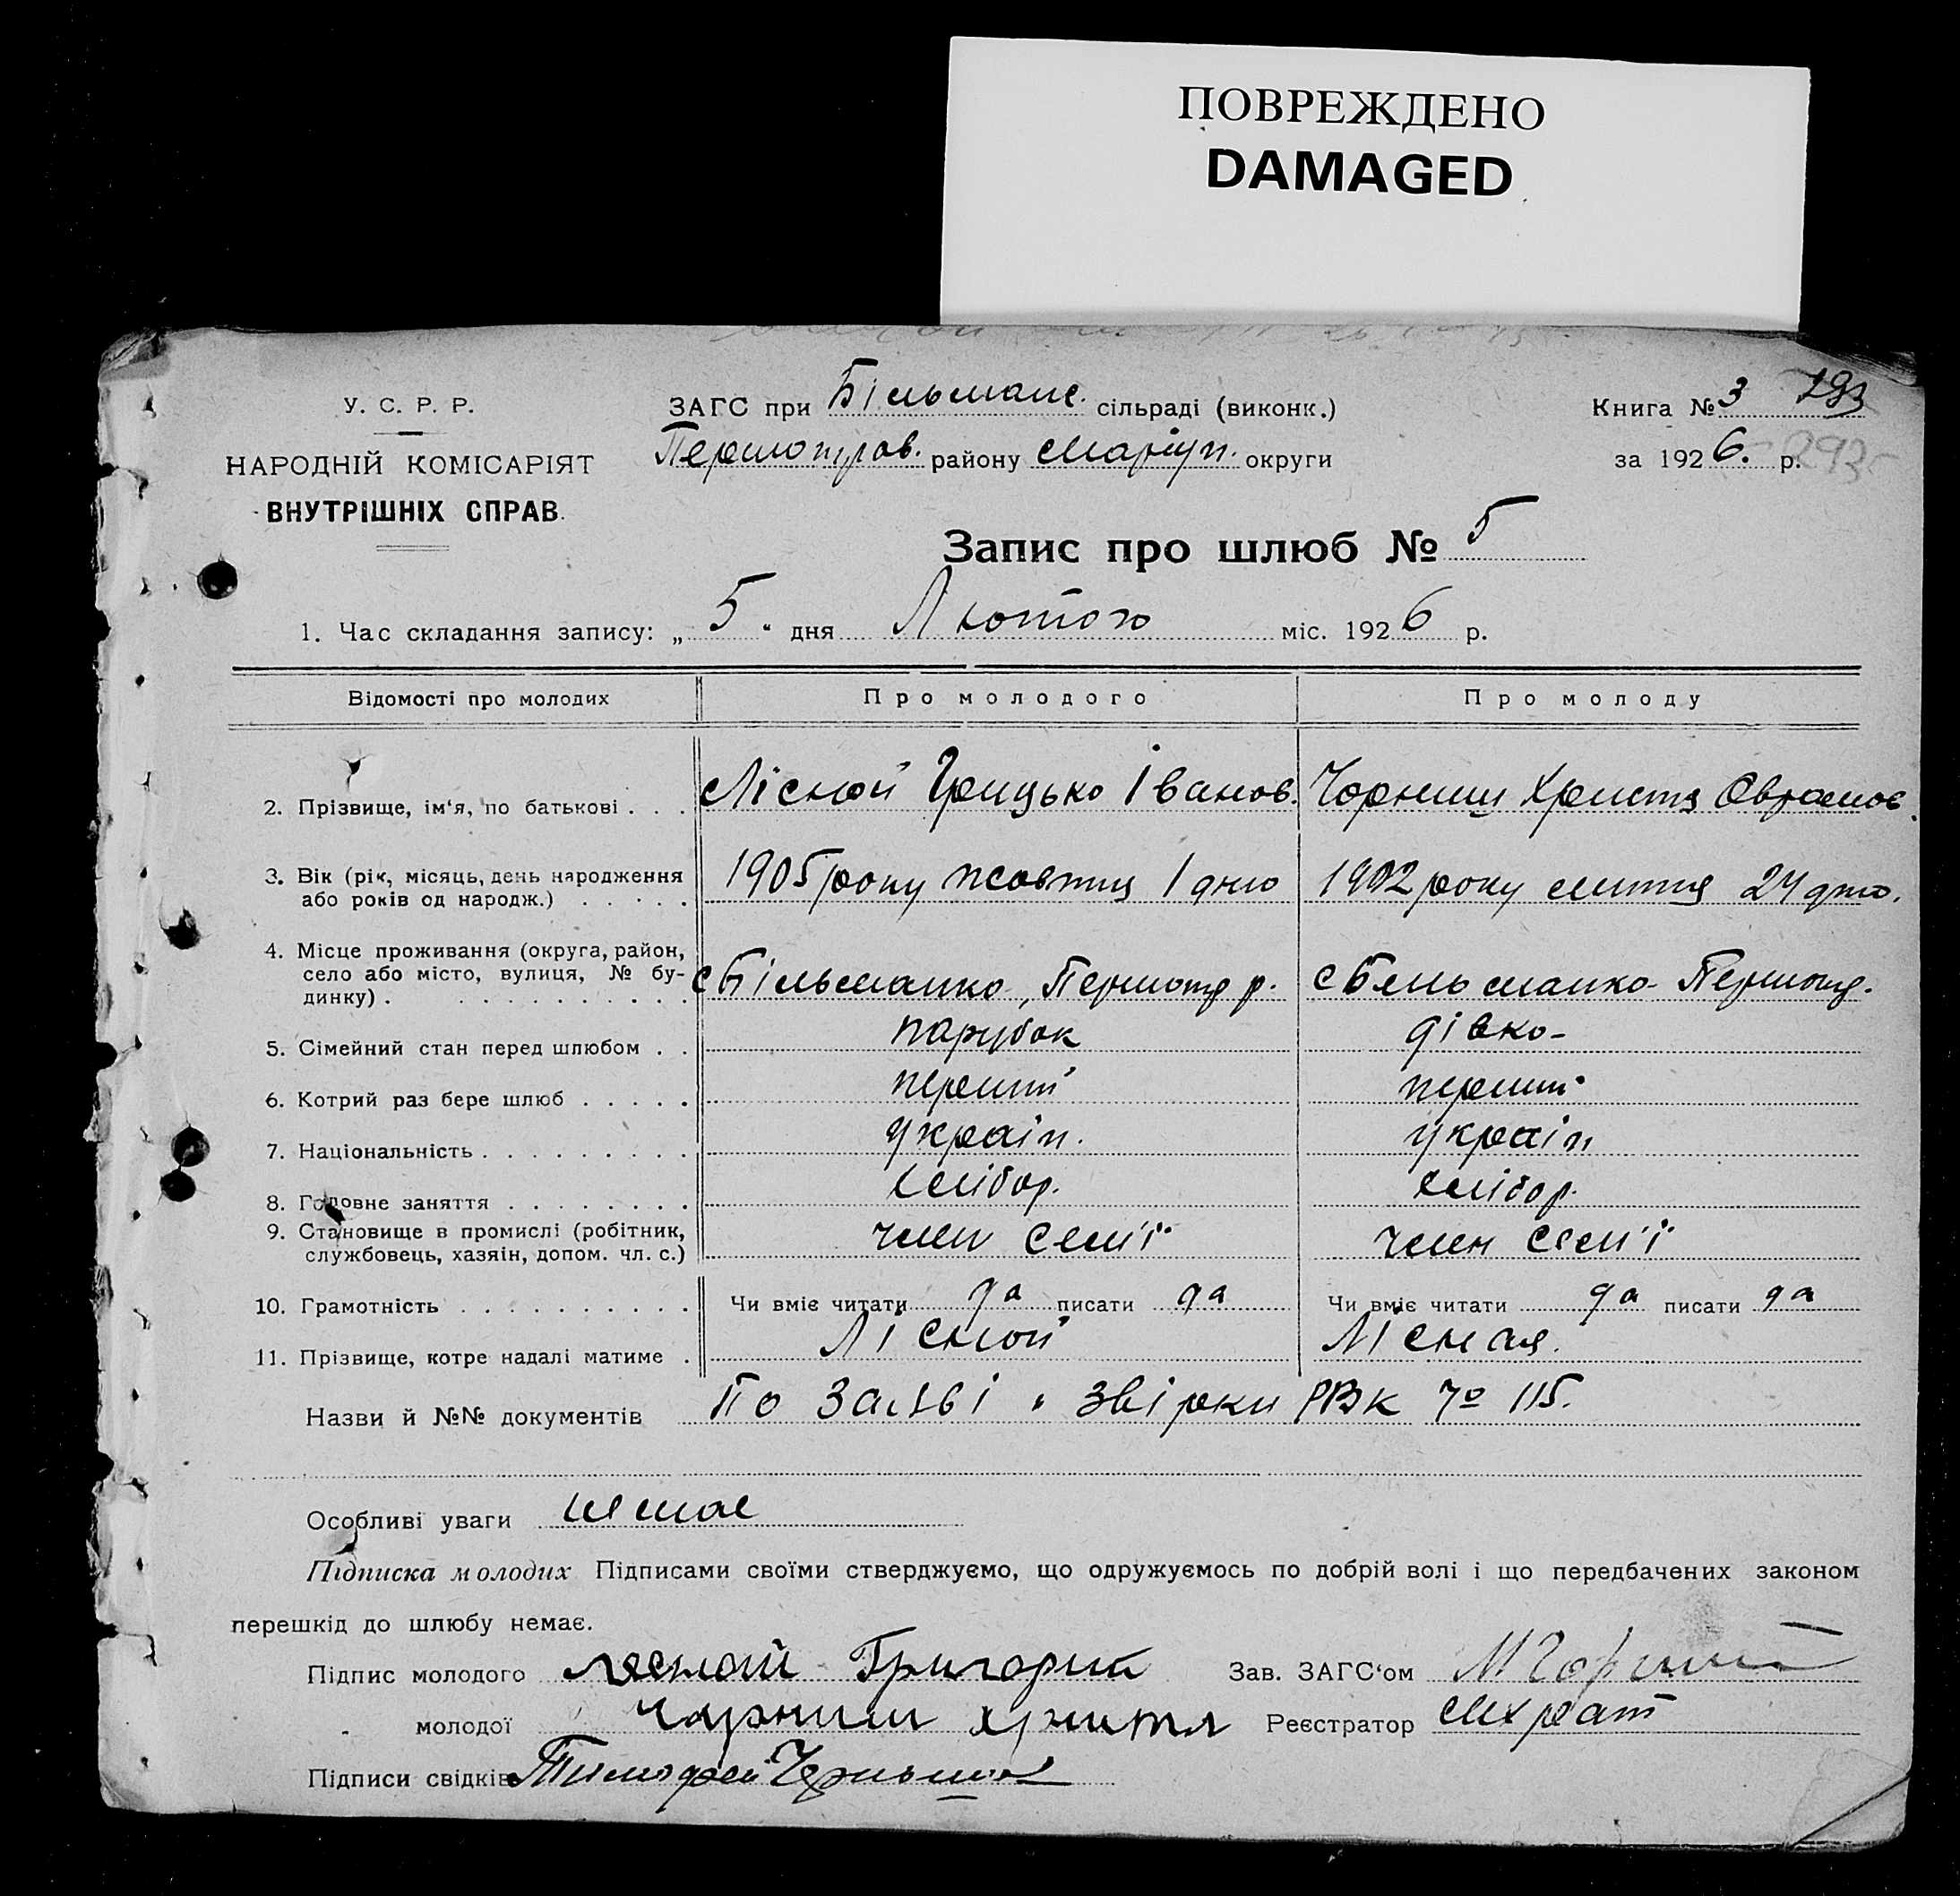 ПОВРЕЖДЕНО
DAMAGED
У. С. Р. Р.
НАРОДНІЙ КОМІСАРІЯТ
ВНУТРІШНІХ СПРАВ.
ЗАГС при Більманс. сільраді (виконк.)
Першотрав. району Маріуп. округи
Книга № 3 293
за 1926. р. 293
Запис про шлюб № 5
1. Час складання запису: „ 5 “ дня Лютого міс. 1926 р.
Відомості про молодих Про молодого Про молоду
2. Прізвище, ім'я, по батькові . . . Лісной Грицько Іванов. Чорниш Христя Оврамов.
3. Вік (рік, місяць, день народження
або років од народж.) . . . . . 1905 року жовтня 1 дню 1902 року липня 24 дню.
4. Місце проживання (округа, район,
село або місто, вулиця, № бу-
динку) . . . . . . . . . . . с Більманко, Першотр р. с Бельманко Першотр.
5. Сімейний стан перед шлюбом . . парубок дівко
6. Котрий раз бере шлюб . . . . . перший перший
7. Національність . . . . . . . . . україн. україн
8. Головне заняття . . . . . . . . хлібор. хлібор.
9. Становище в промислі (робітник,
службовець, хазяін, допом. чл. с.) член семʼї член семʼї
10. Грамотність . . . . . . . . . . Чи вміє читати да писати да Чи вміє читати да писати да
11. Прізвище, котре надалі матиме . Лісной Лісная.
Назви й №№ документів По заяві звірки РВК № 115.
Особливі уваги немає
Підписка молодих Підписами своїми стверджуємо, що одружуємось по добрій волі і що передбачених законом
перешкід до шлюбу немає.
Підпис молодого Лесной Григорий Зав. ЗАГС'ом
„ молодої Чорниш христя Реєстратор
Підписи свідків Тимофей Черныш